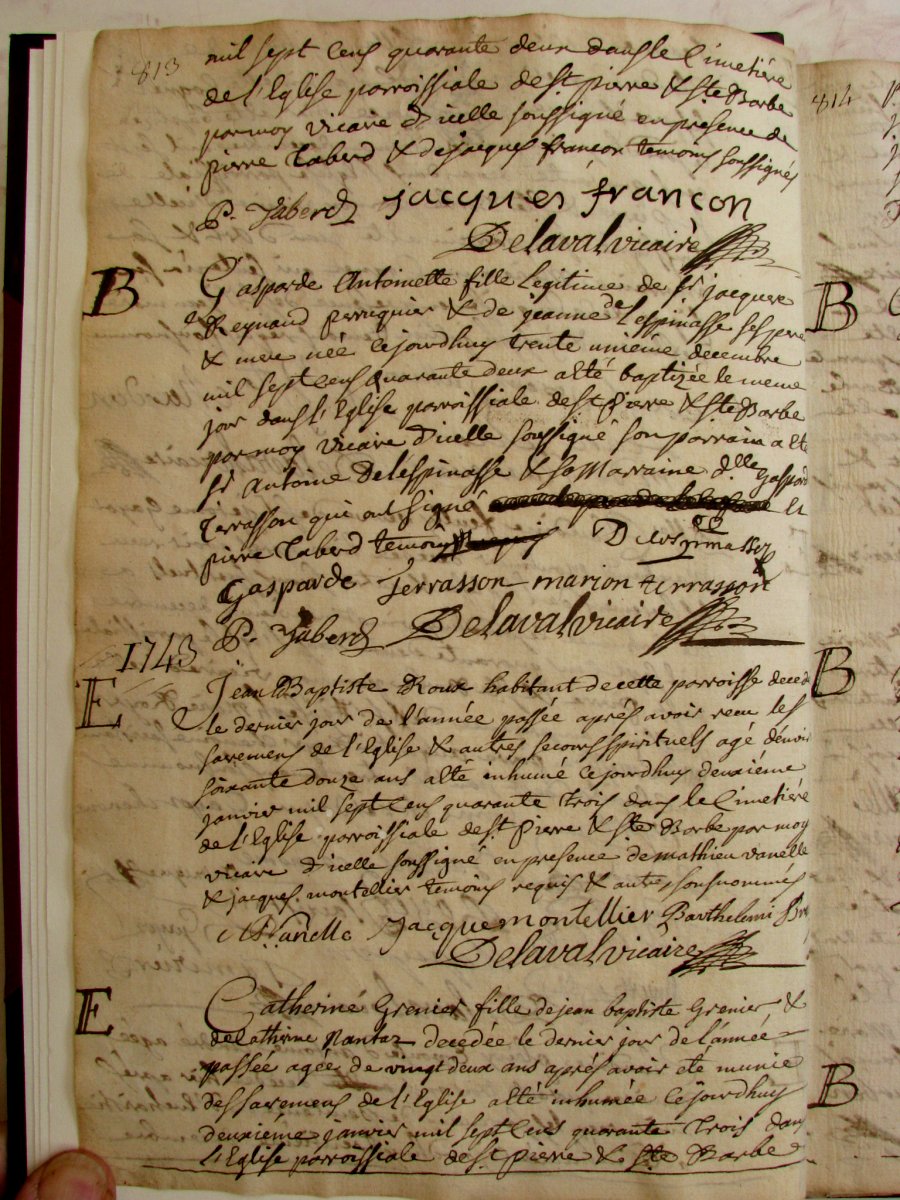 813
mil sept cens quarante deux dans le Cimetiére
de l'Eglise parroissiale de st pierre & ste Barbe
par moy vicaire d'icelle soussigné en présence de
pierre Taberd & de jacques françon temoins soussignés
P. Taberd jacques françon
Delaval vicaire
B
Gasparde Antoinette fille legitime de sr jacques
Reynaud perruquier & de jeanne de Lespinasse ses pere
& mere née cejourdhuy trente unieme decembre
mil sept cens quarante deux a été baptizée le meme
jour dans l'Eglise parroissiale de st pierre & ste Barbe
par moy vicaire d'icelle soussigné son parrain a été
sr Antoine Delespinasse & sa Marraine dlle Gaspard
Terrasson qui ont signé et
pierre Taberd temoins
Gasparde Terrasson marion terrasson
P. Taberd Delaval vicaire
1743
E
Jean Baptiste Roux habitant de cette parroisse decedé
le dernier jour de l'année passée aprés avoir recu les
sacremens de l'Eglise & autres secours spirituels agé d'enviro
soixante douze ans a été inhumé cejourdhuy deuxiéme
janvier mil sept cens quarante trois dans le Cimetiére
de l'Eglise parroissiale de st pierre & ste Barbe par moy
vicaire d'icelle soussigné en presence de mathieu vanelle
& jacques montellier temoins requis & autres sousnommés
M Vanelle Jacque montellier Barthelemi
Delaval vicaire
E
Catherine Grenier fille de jean baptiste Grenier &
de Catherine Nantas decedée le dernier jour de l'année
passée agée de vingt deux ans aprés avoir eté munie
des sacremens de l'Eglise a été inhumée cejourdhuy
deuxiéme janvier mil sept cens quarante trois dans
l'Eglise parroissiale de st pierre & ste Barbe
814
B
B
B